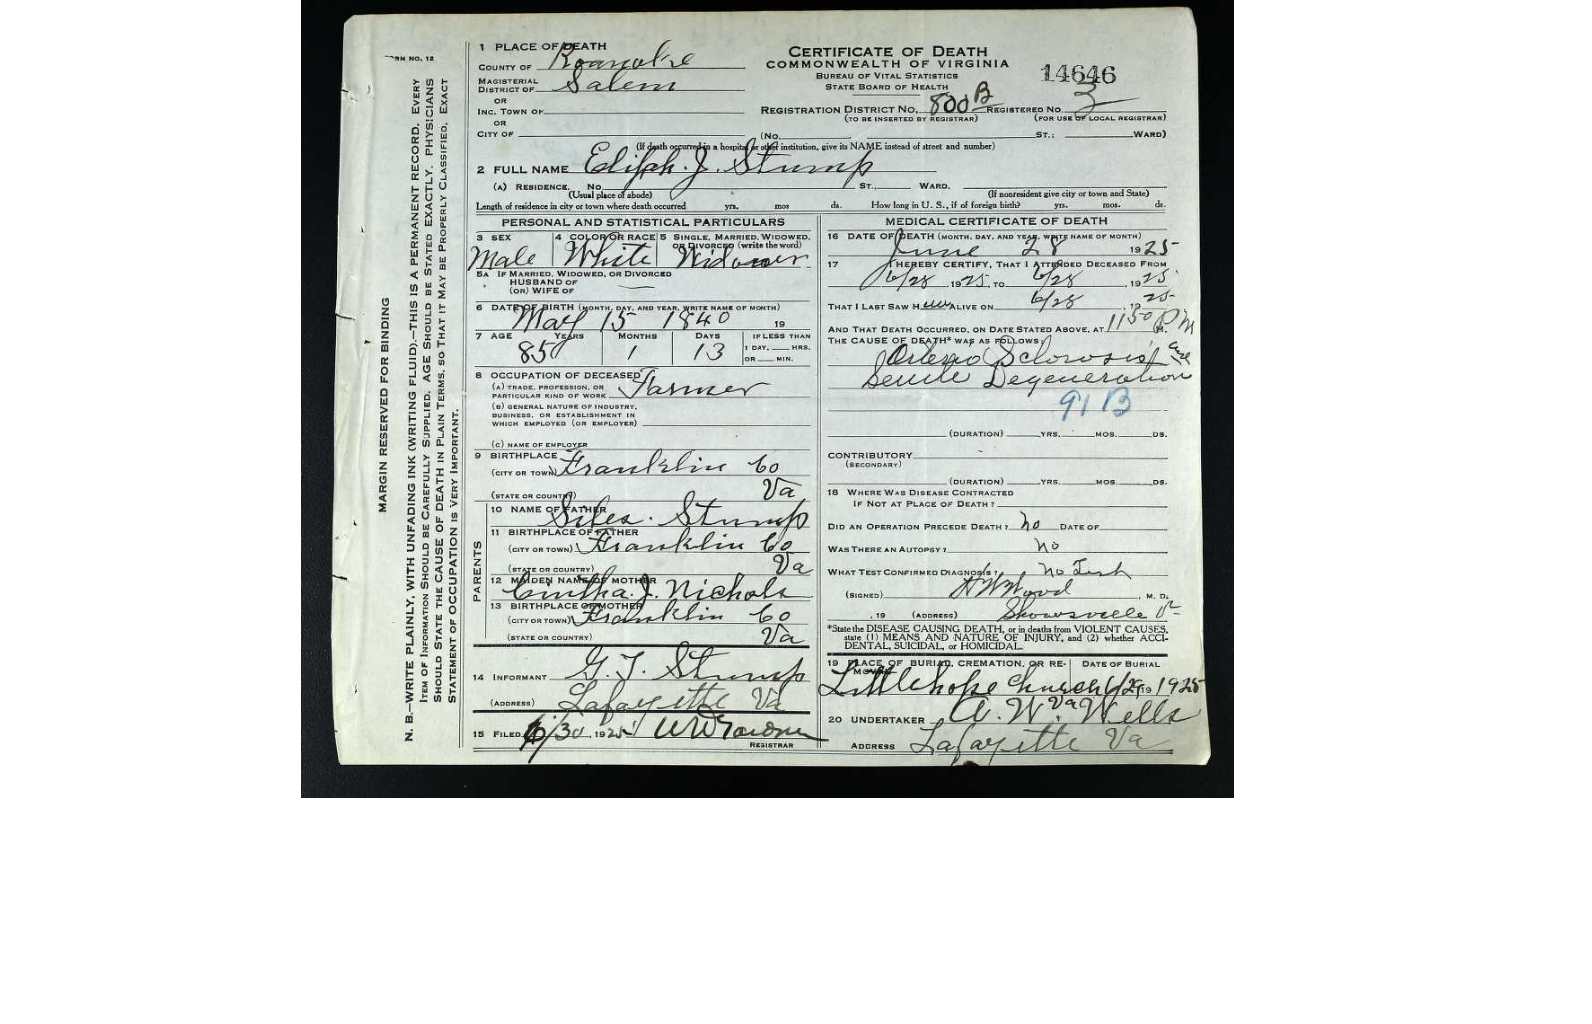 FORM NO. 12
MARGIN RESERVED FOR BINDING
N. B.—WRITE PLAINLY, WITH UNFADING INK (WRITING FLUID).—THIS IS A PERMANENT RECORD. EVERY
ITEM OF INFORMATION SHOULD BE CAREFULLY SUPPLIED. AGE SHOULD BE STATED EXACTLY. PHYSICIANS
SHOULD STATE THE CAUSE OF DEATH IN PLAIN TERMS, SO THAT IT MAY BE PROPERLY CLASSIFIED. EXACT
STATEMENT OF OCCUPATION IS VERY IMPORTANT.
1 PLACE OF DEATH
COUNTY OF Roanoke
MAGISTERIAL DISTRICT OF Salem
OR
INC. TOWN OF
OR
CITY OF
CERTIFICATE OF DEATH
COMMONWEALTH OF VIRGINIA
BUREAU OF VITAL STATISTICS
STATE BOARD OF HEALTH
14646
REGISTRATION DISTRICT NO. 800 B REGISTERED NO. 3
(TO BE INSERTED BY REGISTRAR) (FOR USE OF LOCAL REGISTRAR)
(No. ST.; WARD)
(If death occurred in a hospital or other institution, give its NAME instead of street and number)
2 FULL NAME Elijah. J. Stump
(A) RESIDENCE. No. ST., WARD.
(Usual place of abode) (If nonresident give city or town and State)
Length of residence in city or town where death occurred yrs. mos ds. How long in U. S., if of foreign birth? yrs. mos. ds.
PERSONAL AND STATISTICAL PARTICULARS
3 SEX 4 COLOR OR RACE 5 SINGLE, MARRIED, WIDOWED, OR DIVORCED (write the word)
Male White Widower
5A IF MARRIED, WIDOWED, OR DIVORCED
HUSBAND OF
(OR) WIFE OF
6 DATE OF BIRTH (MONTH, DAY, AND YEAR, WRITE NAME OF MONTH)
May 15 1840 19
7 AGE YEARS MONTHS DAYS IF LESS THAN
85 1 13 1 DAY, HRS.
OR MIN.
8 OCCUPATION OF DECEASED
(A) TRADE, PROFESSION, OR PARTICULAR KIND OF WORK Farmer
(B) GENERAL NATURE OF INDUSTRY,
BUSINESS, OR ESTABLISHMENT IN
WHICH EMPLOYED (OR EMPLOYER)
(C) NAME OF EMPLOYER
9 BIRTHPLACE
(CITY OR TOWN) Franklin Co
(STATE OR COUNTRY) Va
PARENTS
10 NAME OF FATHER Silas. Stump
11 BIRTHPLACE OF FATHER
(CITY OR TOWN) Franklin Co
(STATE OR COUNTRY) Va
12 MAIDEN NAME OF MOTHER
Cintha. J. Nichols
13 BIRTHPLACE OF MOTHER
(CITY OR TOWN) Franklin Co
(STATE OR COUNTRY) Va
14 INFORMANT G. T. Stump
(ADDRESS) Lafayette Va
15 FILED 6/30, 1925
REGISTRAR
MEDICAL CERTIFICATE OF DEATH
16 DATE OF DEATH (MONTH, DAY, AND YEAR, WRITE NAME OF MONTH)
June 28 1925
17 I HEREBY CERTIFY, THAT I ATTENDED DECEASED FROM
6/28 1925, TO 6/28, 1925
THAT I LAST SAW H ALIVE ON 6/28, 1925
AND THAT DEATH OCCURRED, ON DATE STATED ABOVE, AT 1150 P M
THE CAUSE OF DEATH* WAS AS FOLLOWS:
Arterio Sclerosis and
Senile Degeneration
91 B
(DURATION) YRS. MOS. DS.
CONTRIBUTORY
(SECONDARY)
(DURATION) YRS. MOS. DS.
18 WHERE WAS DISEASE CONTRACTED
IF NOT AT PLACE OF DEATH?
DID AN OPERATION PRECEDE DEATH? No DATE OF
WAS THERE AN AUTOPSY? No
WHAT TEST CONFIRMED DIAGNOSIS? No Test
(SIGNED) Wood, M. D.
, 19 (ADDRESS) Shawsville Va
*State the DISEASE CAUSING DEATH, or in deaths from VIOLENT CAUSES,
state (1) MEANS AND NATURE OF INJURY, and (2) whether ACCI-
DENTAL, SUICIDAL, or HOMICIDAL.
19 PLACE OF BURIAL, CREMATION, OR RE- DATE OF BURIAL
MOVAL
Little hope Church 6/29 19 1925
Va
20 UNDERTAKER A. W. Wells
ADDRESS Lafayette Va